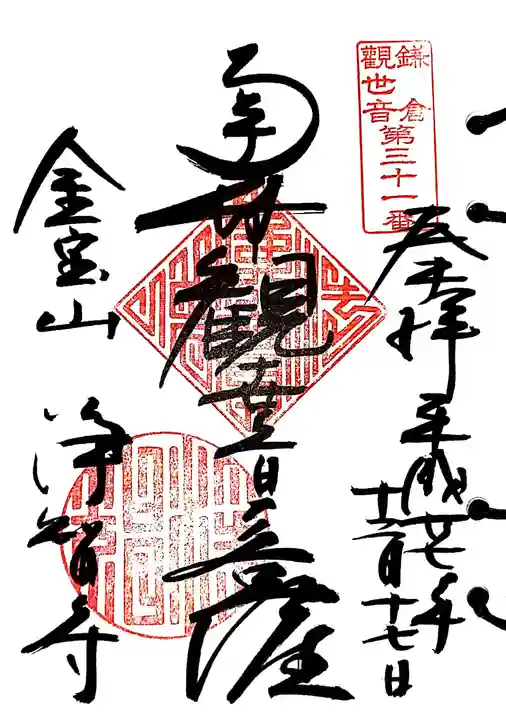 鎌倉
觀世音
第三十一番
奉拝
平成廿七年
十二月十七日
南無觀世音菩薩
金宝山
浄智寺